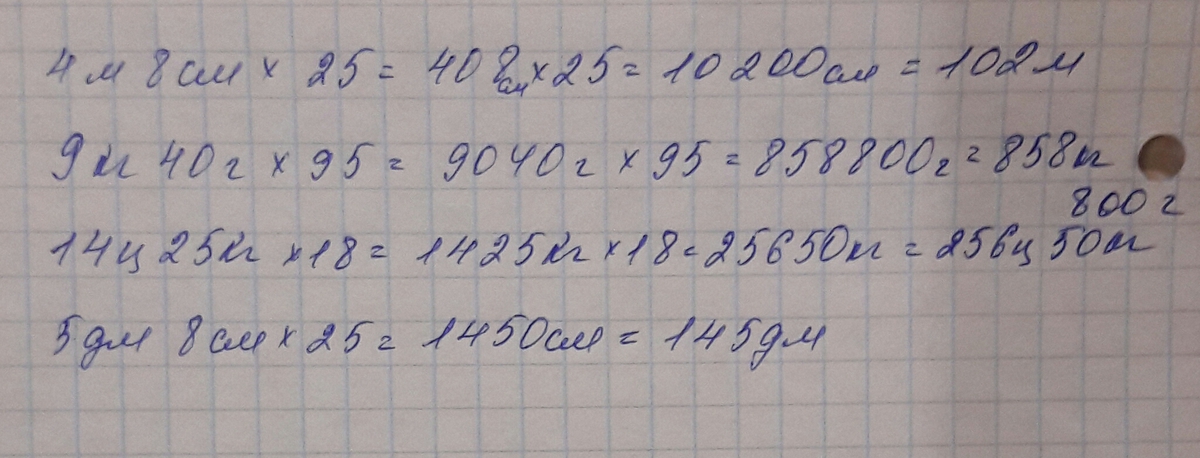 4 м 8 см × 25 = 408 см × 25 = 10200 см = 102 м
9 кг 40 г × 95 = 9040 г × 95 = 858800 г = 858 кг
800 г
14 ц 25 кг × 18 = 1425 кг × 18 = 25650 кг = 256 ц 50 кг
5 дм 8 см × 25 = 1450 см = 145 дм